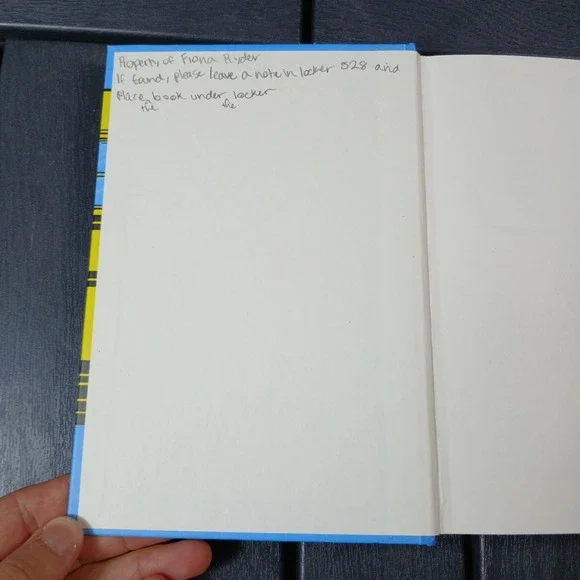 Property of Fiona Ryder
If found, please leave a note in locker 528 and
Place the book under the locker